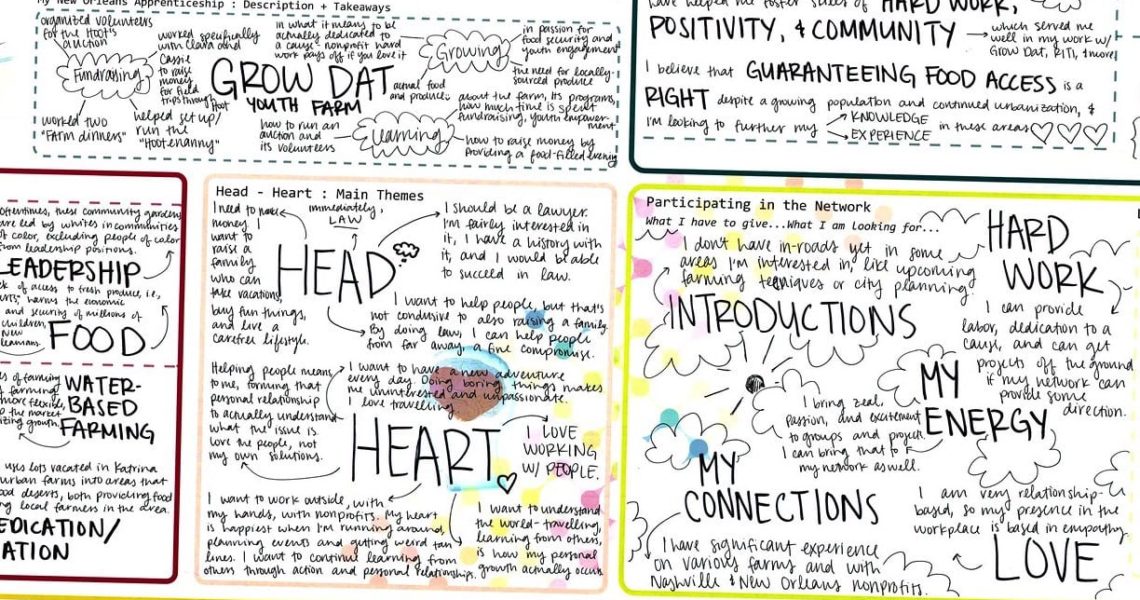 My New Orleans Apprenticeship : Description + Takeaways
organized volunteers
for the Hoot's
auction
Fundraising
worked two
"Farm dinners"
worked specifically
with Clara and
Cassie
to raise
money
for field
trips through
Hoot
helped set up/
run the
"Hootenanny"
in what it means to be
actually dedicated to
a cause - nonprofit hard
work pays off if you love it
GROW DAT
YOUTH FARM
actual food
and produce
how to run an
auction and
its volunteers
Growing
Learning
in passion for
food security and
youth engagement
the need for locally-
sourced produce
about the farm, its programs,
how much time is spent
fundraising, youth empower-
ment
how to raise money by
providing a food-filled evening
have helped me foster
HARD WORK,
POSITIVITY, & COMMUNITY
which served me
well in my work w/
Grow Dat, RITI, & more
I believe that GUARANTEEING FOOD ACCESS is a
RIGHT despite a growing population and continued urbanization, &
I'm looking to further my
KNOWLEDGE
EXPERIENCE
in these areas
oftentimes, these community gardens
are led by whites in communities
of color, excluding people of color
from leadership positions.
LEADERSHIP
of access to fresh produce, i.e.,
harms the economic
and security of millions of
children,
New
FOOD
of farming
farming
more flexible,
the market
growth
WATER-
BASED
FARMING
uses lots vacated in Katrina
urban farms into areas that
deserts, both providing food
local farmers in the area.
Head - Heart : Main Themes
I need to make
money. I
want to
raise a
family
who can
take vacations,
buy fun things,
and live a
carefree lifestyle.
immediately,
LAW
HEAD
I should be a lawyer.
I'm fairly interested in
it, I have a history with
it, and I would be able
to succeed in law.
I want to help people, but that's
not conducive to also raising a family.
By doing law, I can help people
from far away, a fine compromise.
Helping people means
to me, forming that
personal relationship
to actually understand
what the issue is.
love the people, not
my own solutions.
I want to have a new adventure
every day. Doing boring things makes
me uninterested and unpassionate.
I love travelling.
HEART
I LOVE
WORKING
W/ PEOPLE.
I want to work outside, with
my hands, with nonprofits. My heart
is happiest when I'm running around,
planning events and getting weird tan
lines. I want to continue learning from
others through action and personal relationships.
I want to understand
the world - travelling,
learning from others,
is how my personal
growth actually occurs
Participating in the Network
What I have to give...What I am Looking for...
I don't have in-roads yet in some
areas I'm interested in, like upcoming
farming techniques or city planning.
INTRODUCTIONS
HARD
WORK
I can provide
labor, dedication to a
cause, and can get
projects off the ground
if my network can
provide some
direction.
MY
ENERGY
I bring zeal,
passion, and excitement
to groups and projects
I can bring that to
my network as well.
MY
CONNECTIONS
I have significant experience
on various farms and with
Nashville & New Orleans nonprofits.
I am very relationship-
based, so my presence in the
workplace is based in empathy.
LOVE